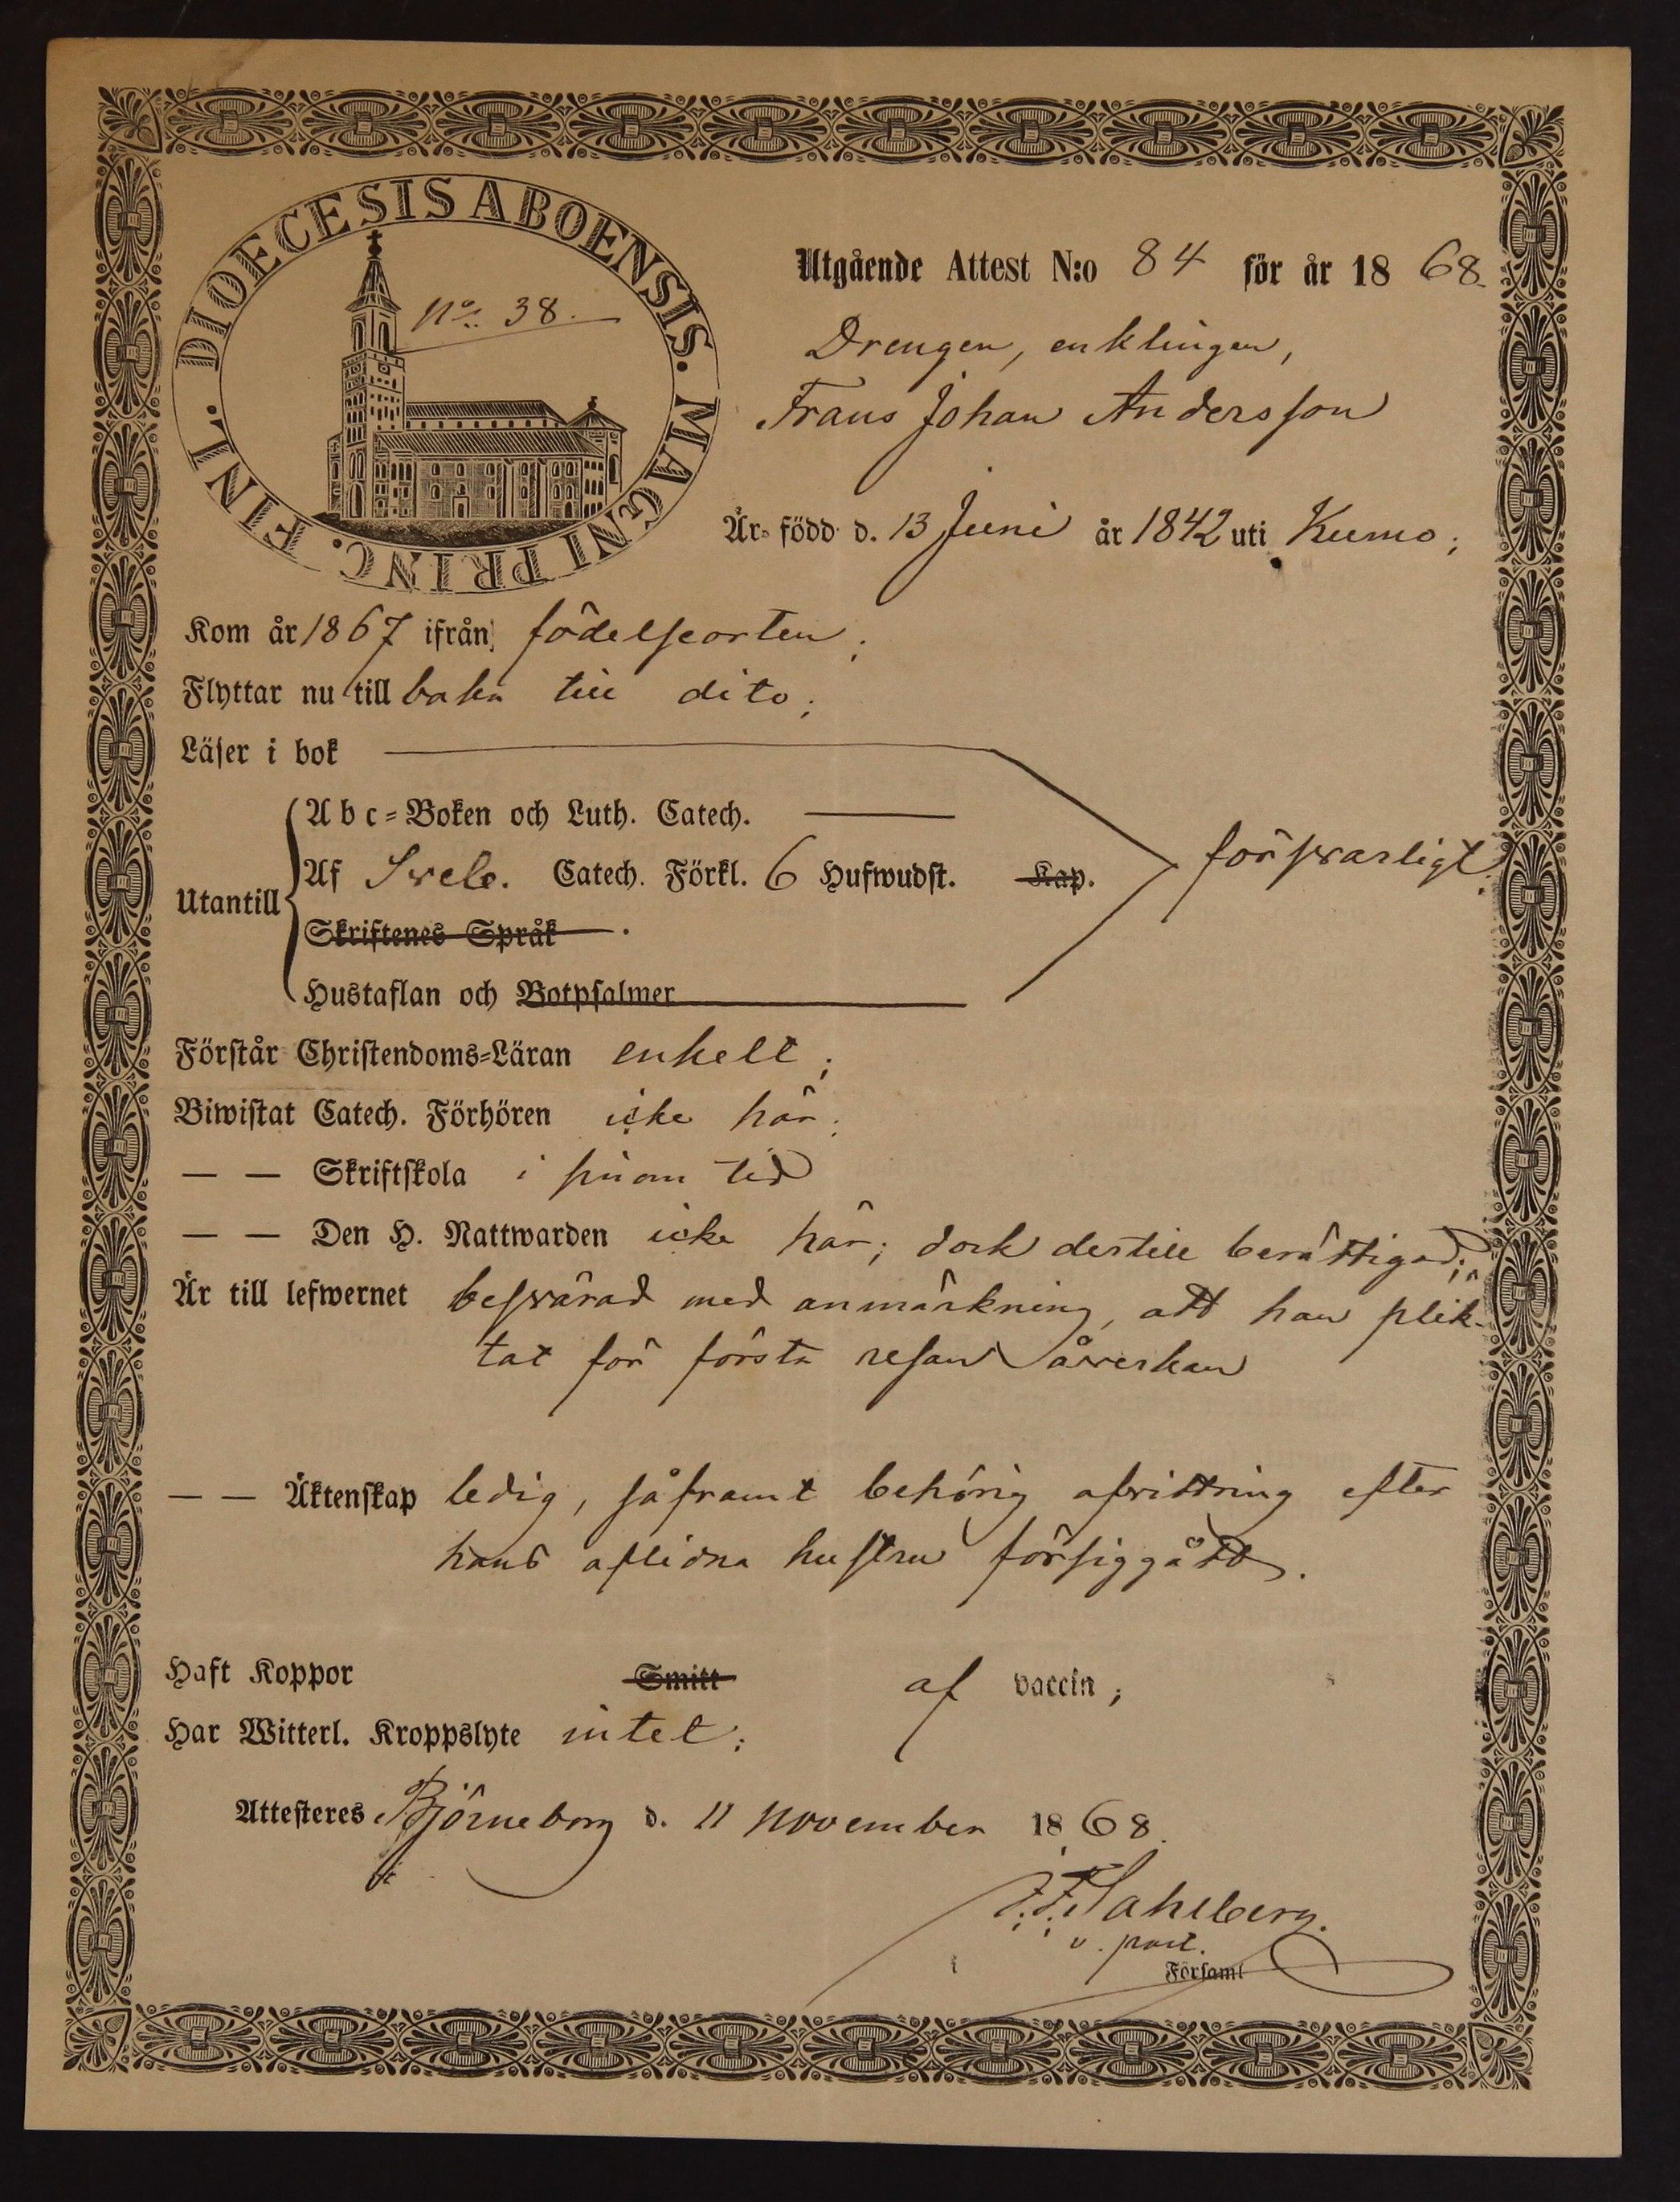 DIOECESIS ABOENSIS. MAGNI PRINC. FINL.
No. 38.
Utgående Attest N:o 84 för år 1868.
Drengen, enklingen,
Frans Johan Andersson
Är född d. 13 Juni år 1842 uti Kumo;
Kom år 1867 ifrån födelseorten;
Flyttar nu till baka till dito;
Läser i bok
Utantill
Abc-Boken och Luth. Catech.
försvarligt;
Af Sveb. Catech. Förkl. 6 Hufwudst. Kap.
Skriftenes Språk
Hustaflan och Botpsalmer
Förstår Christendoms-Läran enkelt;
Biwistat Catech. Förhören icke här;
— — Skriftskola i sinom tid
— — Den H. Nattwarden icke här; dock dertill berättigad;
Är till lefwernet besvärad med anmärkning, att han plik-
tat för första resan åverkan
— — Äktenskap ledig, såframt behörig afvittring efter
hans aflidna hustru försiggått.
Haft Koppor Smitt af vaccin;
Har Witterl. Kroppslyte intet;
Attesteres Björneborg d. 11 November 1868.
F. Sahlberg.
v. past.
Församl